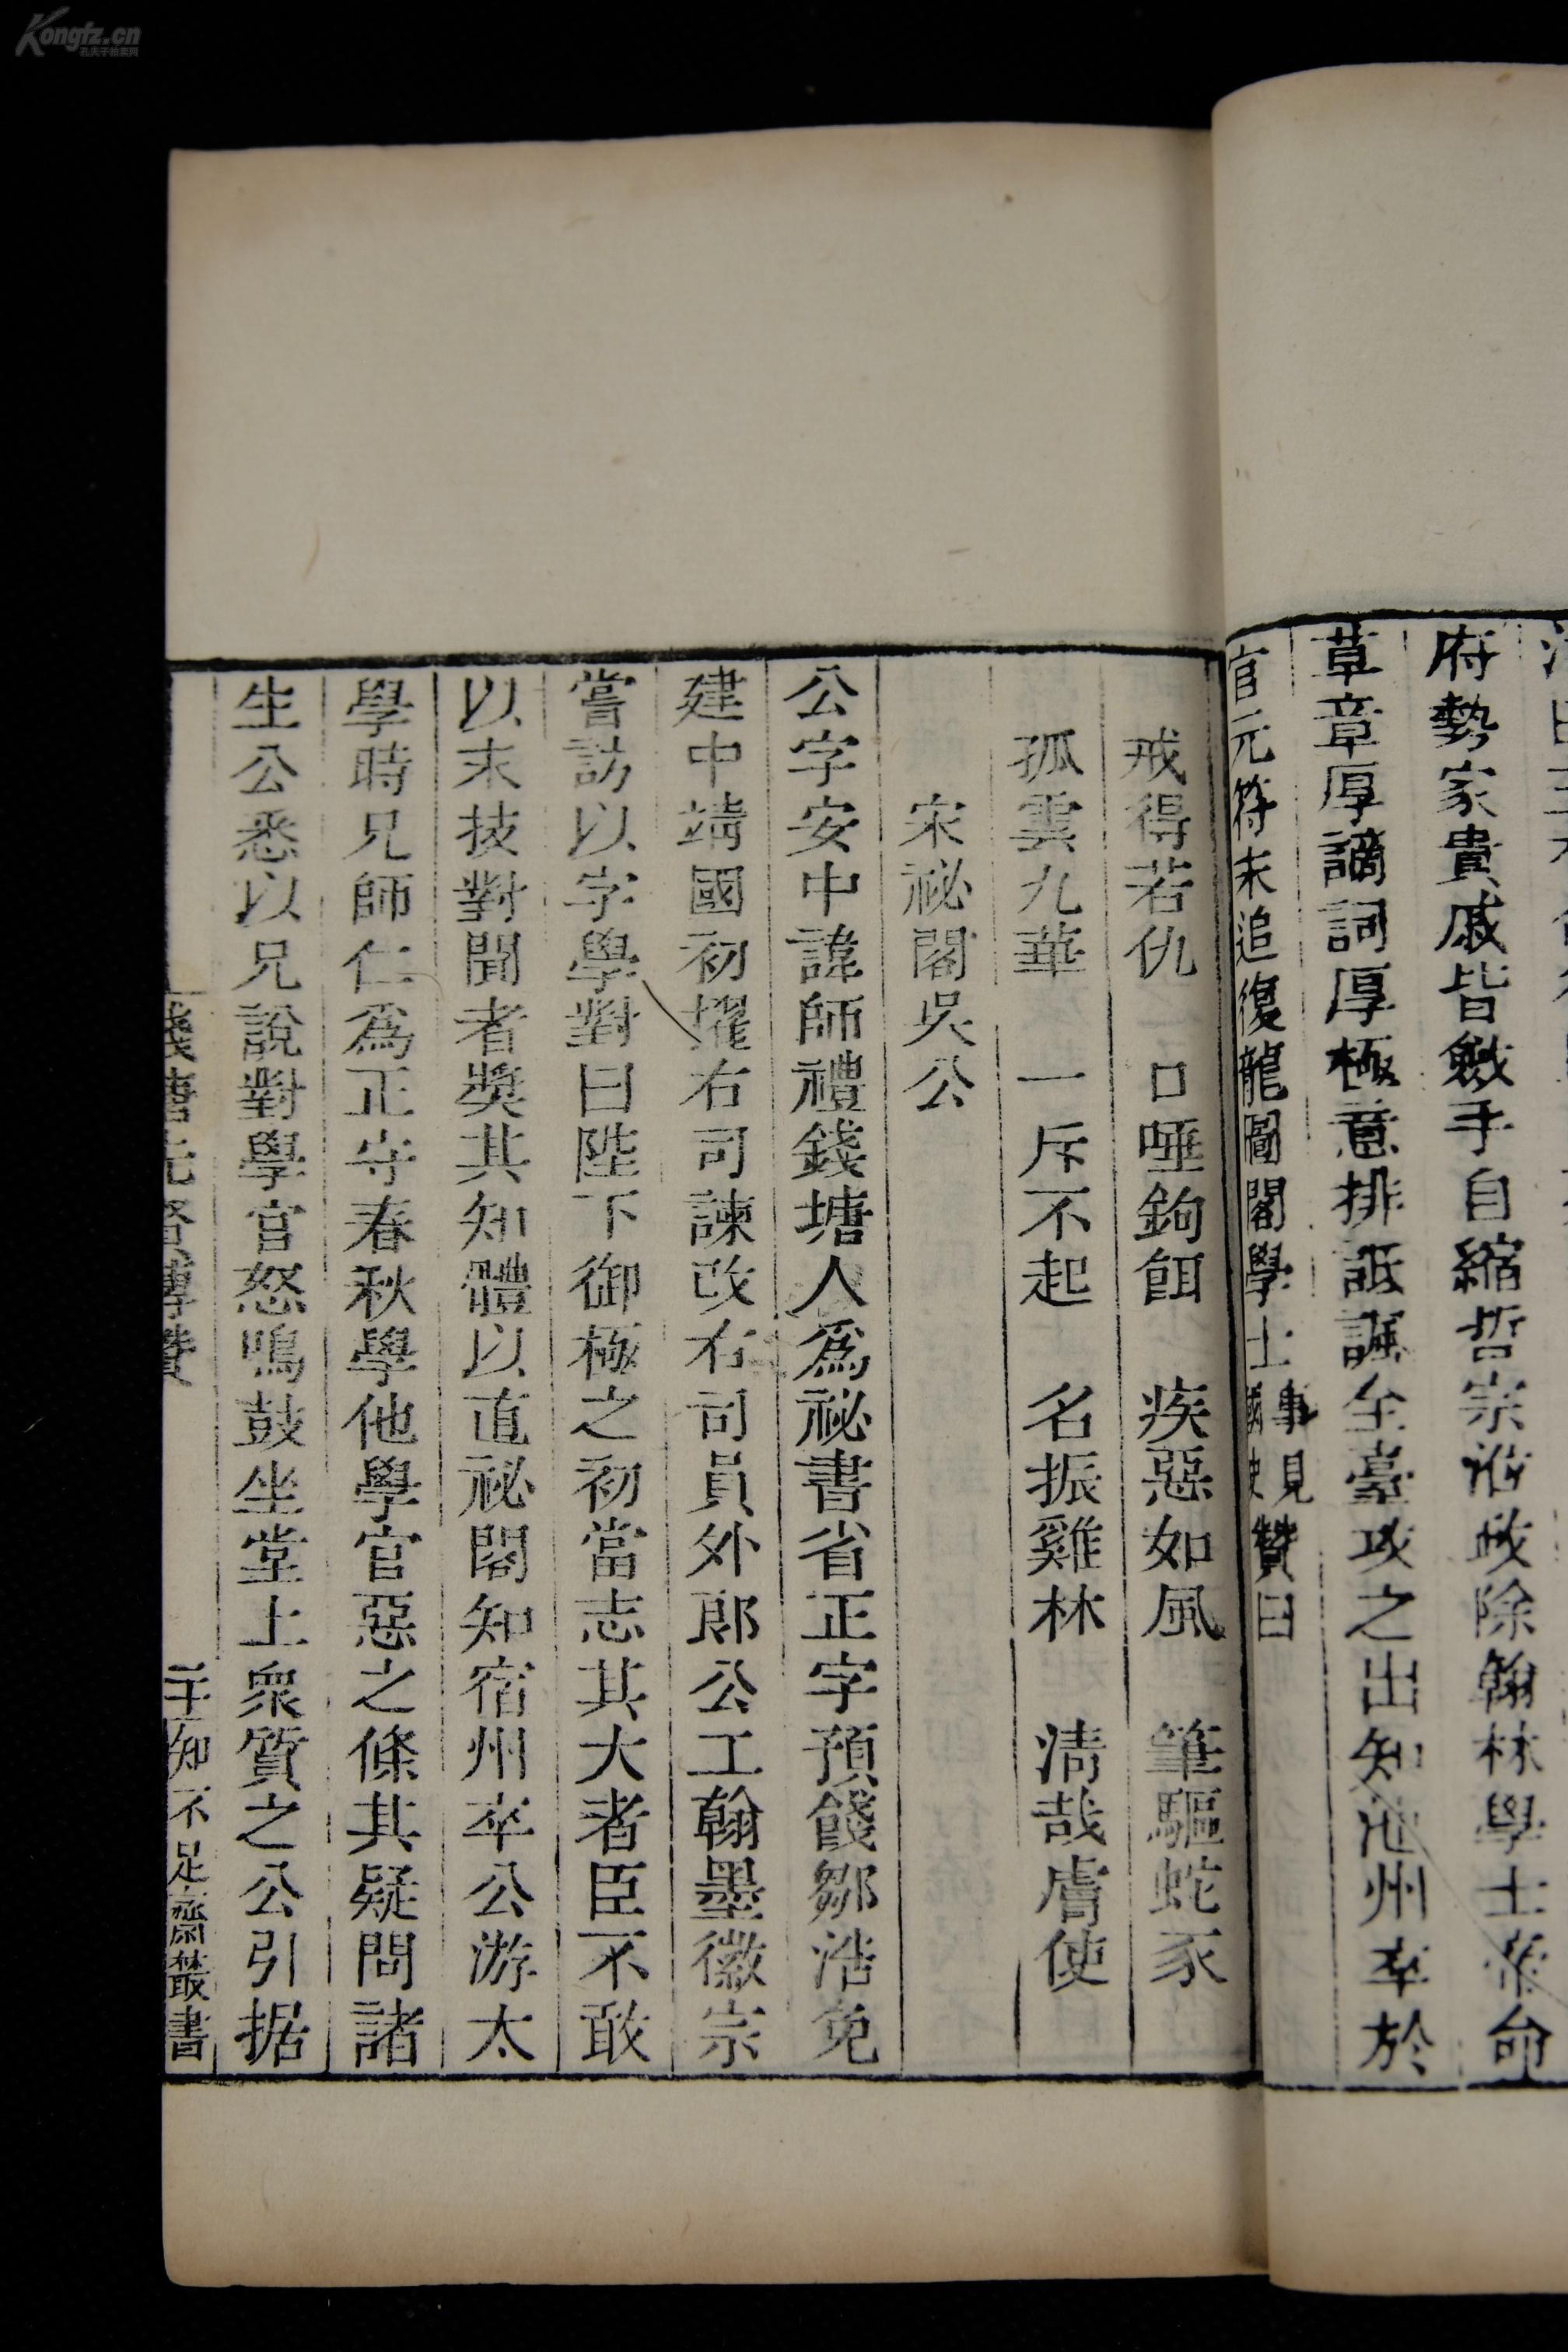 府勢家貴戚皆斂手自縮哲宗涖政除翰林學士
草章厚謫詞厚極意排詆諷至臺攻之出知池州卒於
官元符末追復龍圖閣學士事見國史贊曰
戒得若仇 口唾鉤餌 疾惡如風 筆驅蛇豕
孤雲九華 一斥不起 名振雞林 淸哉膚使
宋祕閣吳公
公字安中諱師禮錢塘人爲祕書省正字預餞鄒浩免
建中靖國初擢右司諫改右司員外郎公工翰墨徽宗
嘗訪以字學對曰陛下御極之初當志其大者臣不敢
以末技對聞者奬其知體以直祕閣知宿州卒公游太
學時兄師仁爲正守春秋學他學官惡之條其疑問諸
生公悉以兄說對學官怒鳴鼓坐堂上衆質之公引据
錢塘先賢傳贊
知不足齋叢書
Kongfz.cn